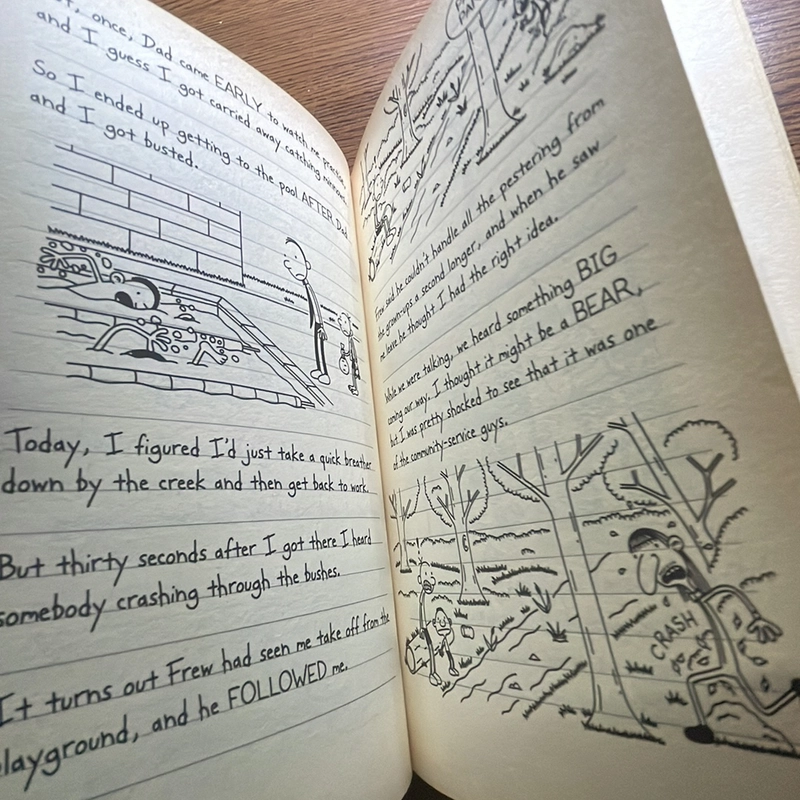 once, Dad came EARLY to watch me practice
and I guess I got carried away catching minnows.
So I ended up getting to the pool AFTER Dad
and I got busted.
Today, I figured I'd just take a quick breather
down by the creek and then get back to work.
But thirty seconds after I got there I heard
somebody crashing through the bushes.
It turns out Frew had seen me take off from the
playground, and he FOLLOWED me.
Frew said he couldn't handle all the pestering from
the grown-ups a second longer, and when he saw
me leave he thought I had the right idea.
While we were talking, we heard something BIG
coming our way. I thought it might be a BEAR,
but I was pretty shocked to see that it was one
of the community-service guys.
CRASH